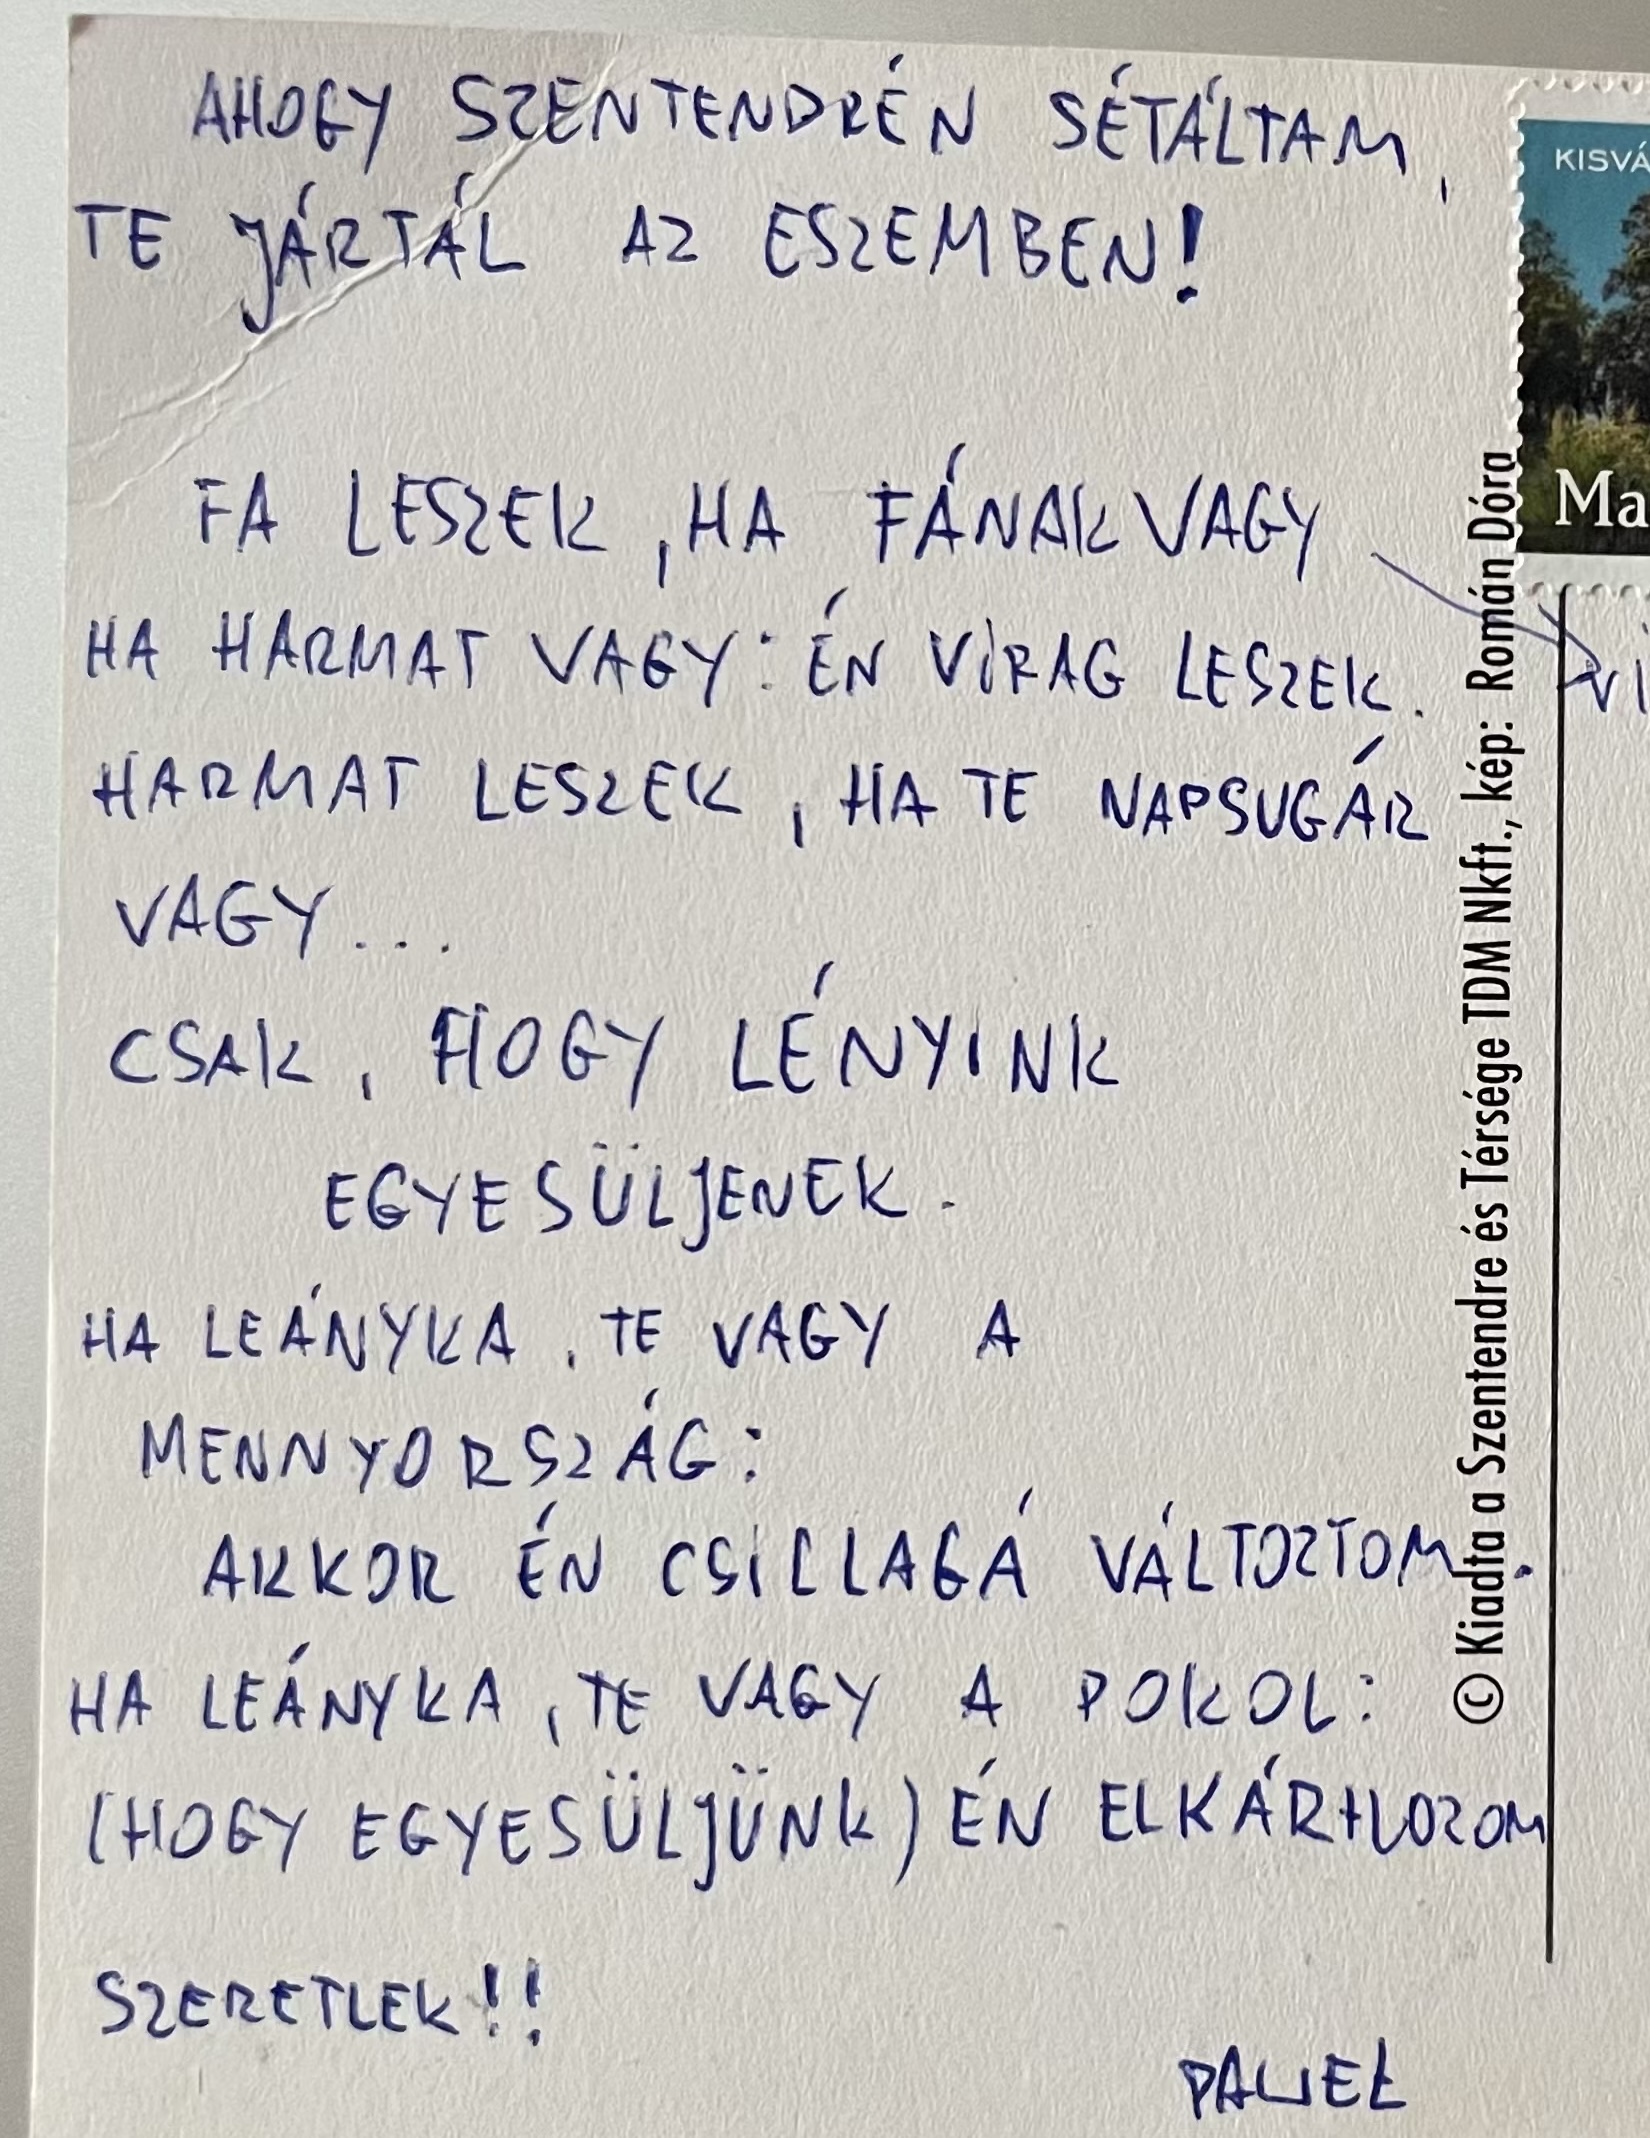 AHOGY SZENTENDRÉN SÉTÁLTAM,
TE JÁRTÁL AZ ESZEMBEN!
FA LESZEK, HA FÁNAK VAGY
HA HARMAT VAGY: ÉN VIRAG LESZEK.
HARMAT LESZEK, HA TE NAPSUGÁR
VAGY...
CSAK, HOGY LÉNYINK
EGYESÜLJENEK.
HA LEÁNYKA, TE VAGY A
MENNYORSZÁG:
AKKOR ÉN CSILLAGÁ VÁLTOZTOM.
HA LEÁNYKA, TE VAGY A POKOL:
(HOGY EGYESÜLJÜNK) ÉN ELKÁRHOZOM
SZERETLEK!!
PAWEŁ
© Kiadta a Szentendre és Térsége TDM Nkft., kép: Román Dóra
KISVÁ
Ma
vi